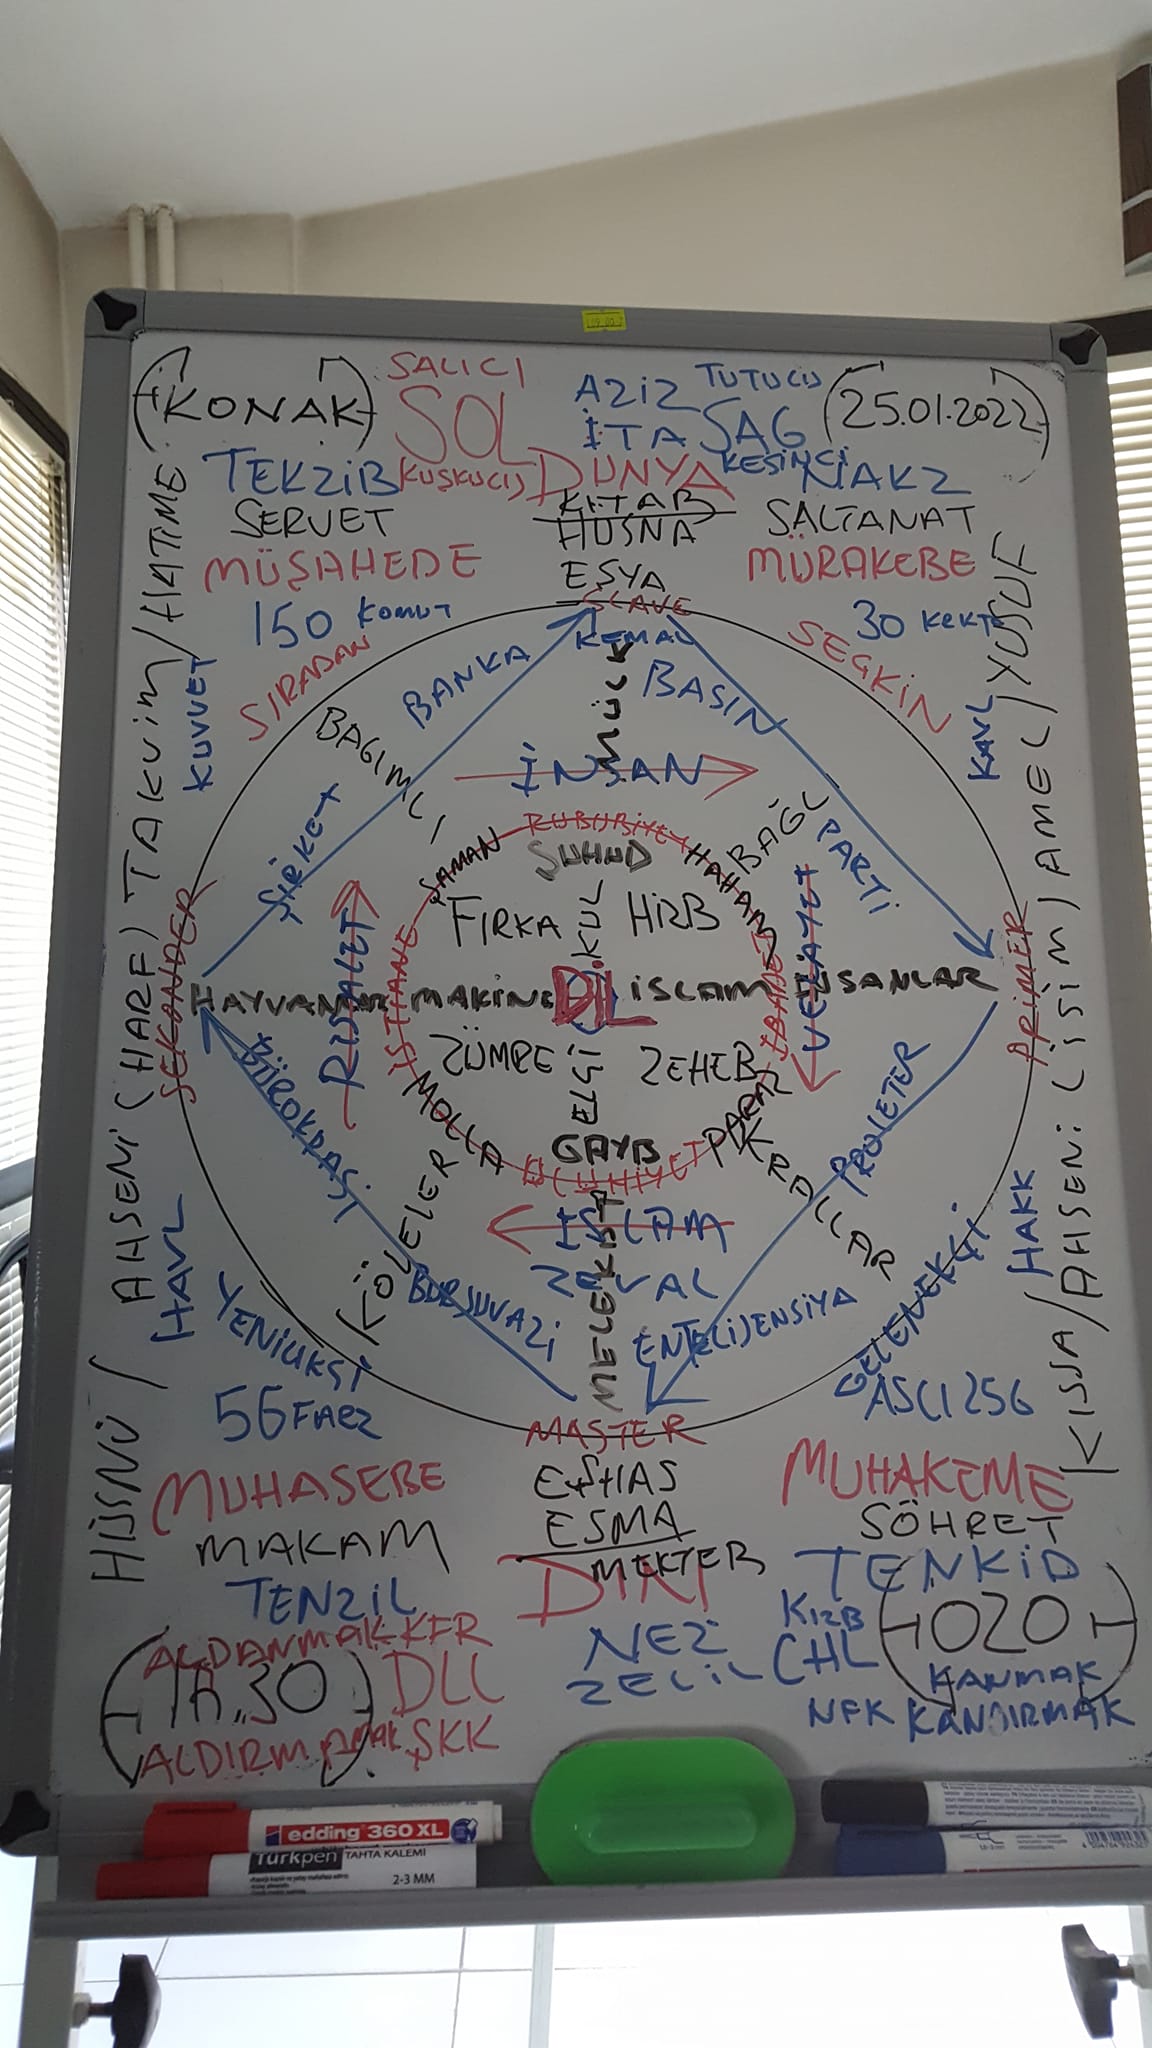 KONAK
SALICI
SOL
AZİZ
TUTUCU
İTA SAG
25.01.2022
TEKZİB
KUŞKUCU
DUNYA
KESİNCİ
NAKZ
SERVET
KİTAB
HUSNA
SALTANAT
MÜŞAHEDE
EŞYA
MÜRAKEBE
SLAVE
150 KOMUT
30 KEKTE
KEMAL
SIRADAN
SEGKİN
KUVVET
KAVL
BANKA
MÜLK
BASIN
BAGIMLI
İNSAN
ŞİRKET
BAĞLI
PARTİ
RUBUBİYET
ŞAMAN
ŞUHUD
HAHAM
FIRKA
KUL
HİZB
SEKANDER
RİSALET
İSTİANE
İBADET
VELAYET
PRİMER
HAYVANLAR MAKİNE DİL İSLAM İNSANLAR
ZÜMRE
ELÇİ
ZEHEB
BÜROKRASİ
MOLLA
GAYB
PAPAZ
PROLETER
ULUHİYET
KÖLELER
KRALLAR
İSLAM
ZEVAL
MELEKLER
HAVL
HAKK
YENİLİKŞİ
BURJUVAZİ
ENTELİJENSİYA
GELENEKÇİ
56 FARZ
ASCI 256
MASTER
MUHASEBE
EŞHAS
MUHAKEME
MAKAM
ESMA
ŞÖHRET
MEKTEB
DİN
TENZİL
TENKİD
ALDANMAK KFR
NEZ
KIZB
CHL
020
11.30
DLL
ZELİL
KANMAK
ALDIRMAMAK ŞKK
NFK KANDIRMAK
HÜSNÜ / AHSENİ (HARF) TAKVİM / HATİME
KISSA / AHSENİ (İSİM) AMEL / YUSUF
edding 360 XL
Türkpen TAHTA KALEMİ
2-3 MM